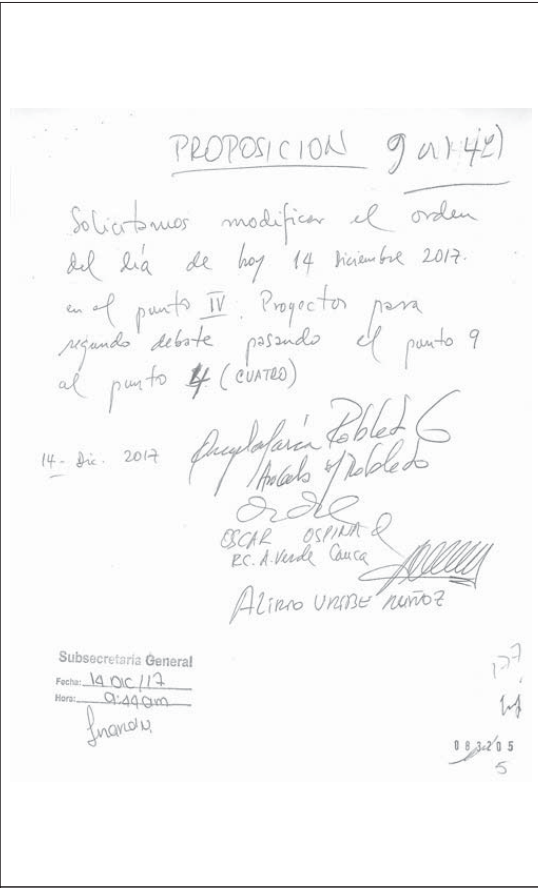 PROPOSICION 9 al 4
Solicitamos modificar el orden
del día de hoy 14 Diciembre 2017.
en el punto IV. Proyectos para
segundo debate pasando el punto 9
al punto 4 (CUATRO)
14 - Dic. 2017
Robledo G
Robledo
OSCAR OSPINA Q
RC. A. Verde Cauca
ALIRIO URIBE MUÑOZ
Subsecretaría General
Fecha: 14 DIC/17
Hora: 9:44am
083205
5